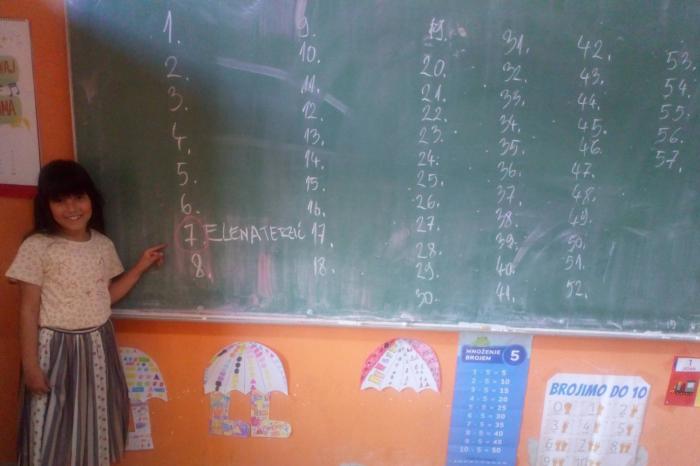 1.
2.
3.
4.
5.
6.
7 ELENA TERZIĆ
8.
9.
10.
11.
12.
13.
14.
15.
16.
17.
18.
19.
20.
21.
22.
23.
24.
25.
26.
27.
28.
29.
30.
31.
32.
33.
34.
35.
36.
37.
38.
39.
40.
41.
42.
43.
44.
45.
46.
47.
48.
49.
50.
51.
52.
53.
54.
55.
56.
57.
MNOŽENJE
BROJEM 5
1 · 5 = 5
2 · 5 = 10
3 · 5 = 15
4 · 5 = 20
5 · 5 = 25
6 · 5 = 30
7 · 5 = 35
8 · 5 = 40
9 · 5 = 45
10 · 5 = 50
BROJIMO DO 10
0 1 2
3 4 5
6 7 8
9 10
1